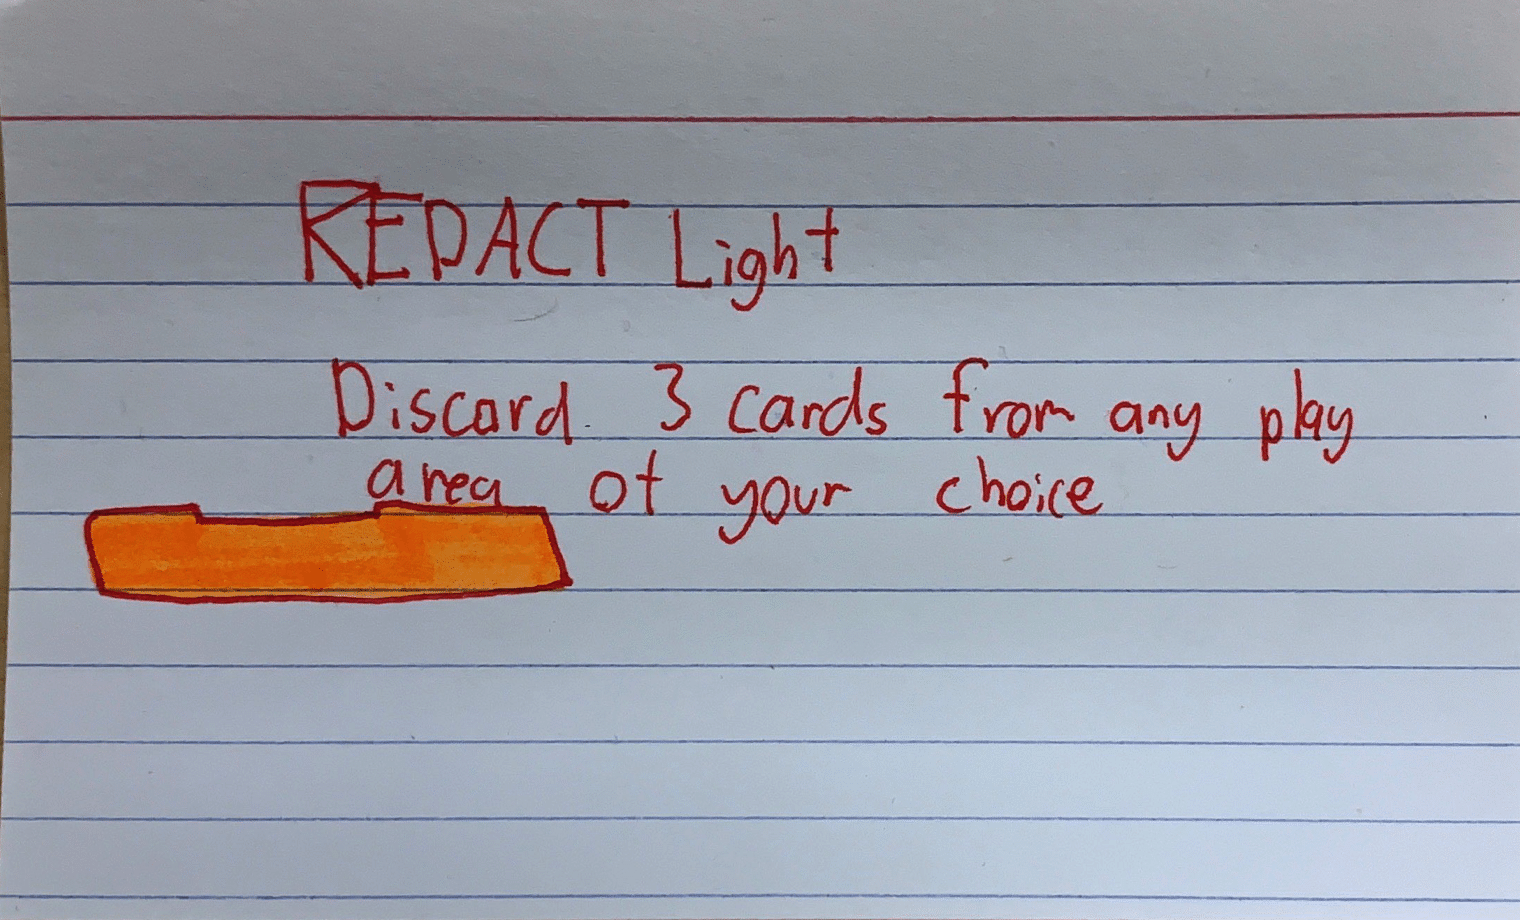 REDACT Light
Discard 3 cards from any play
area of your choice